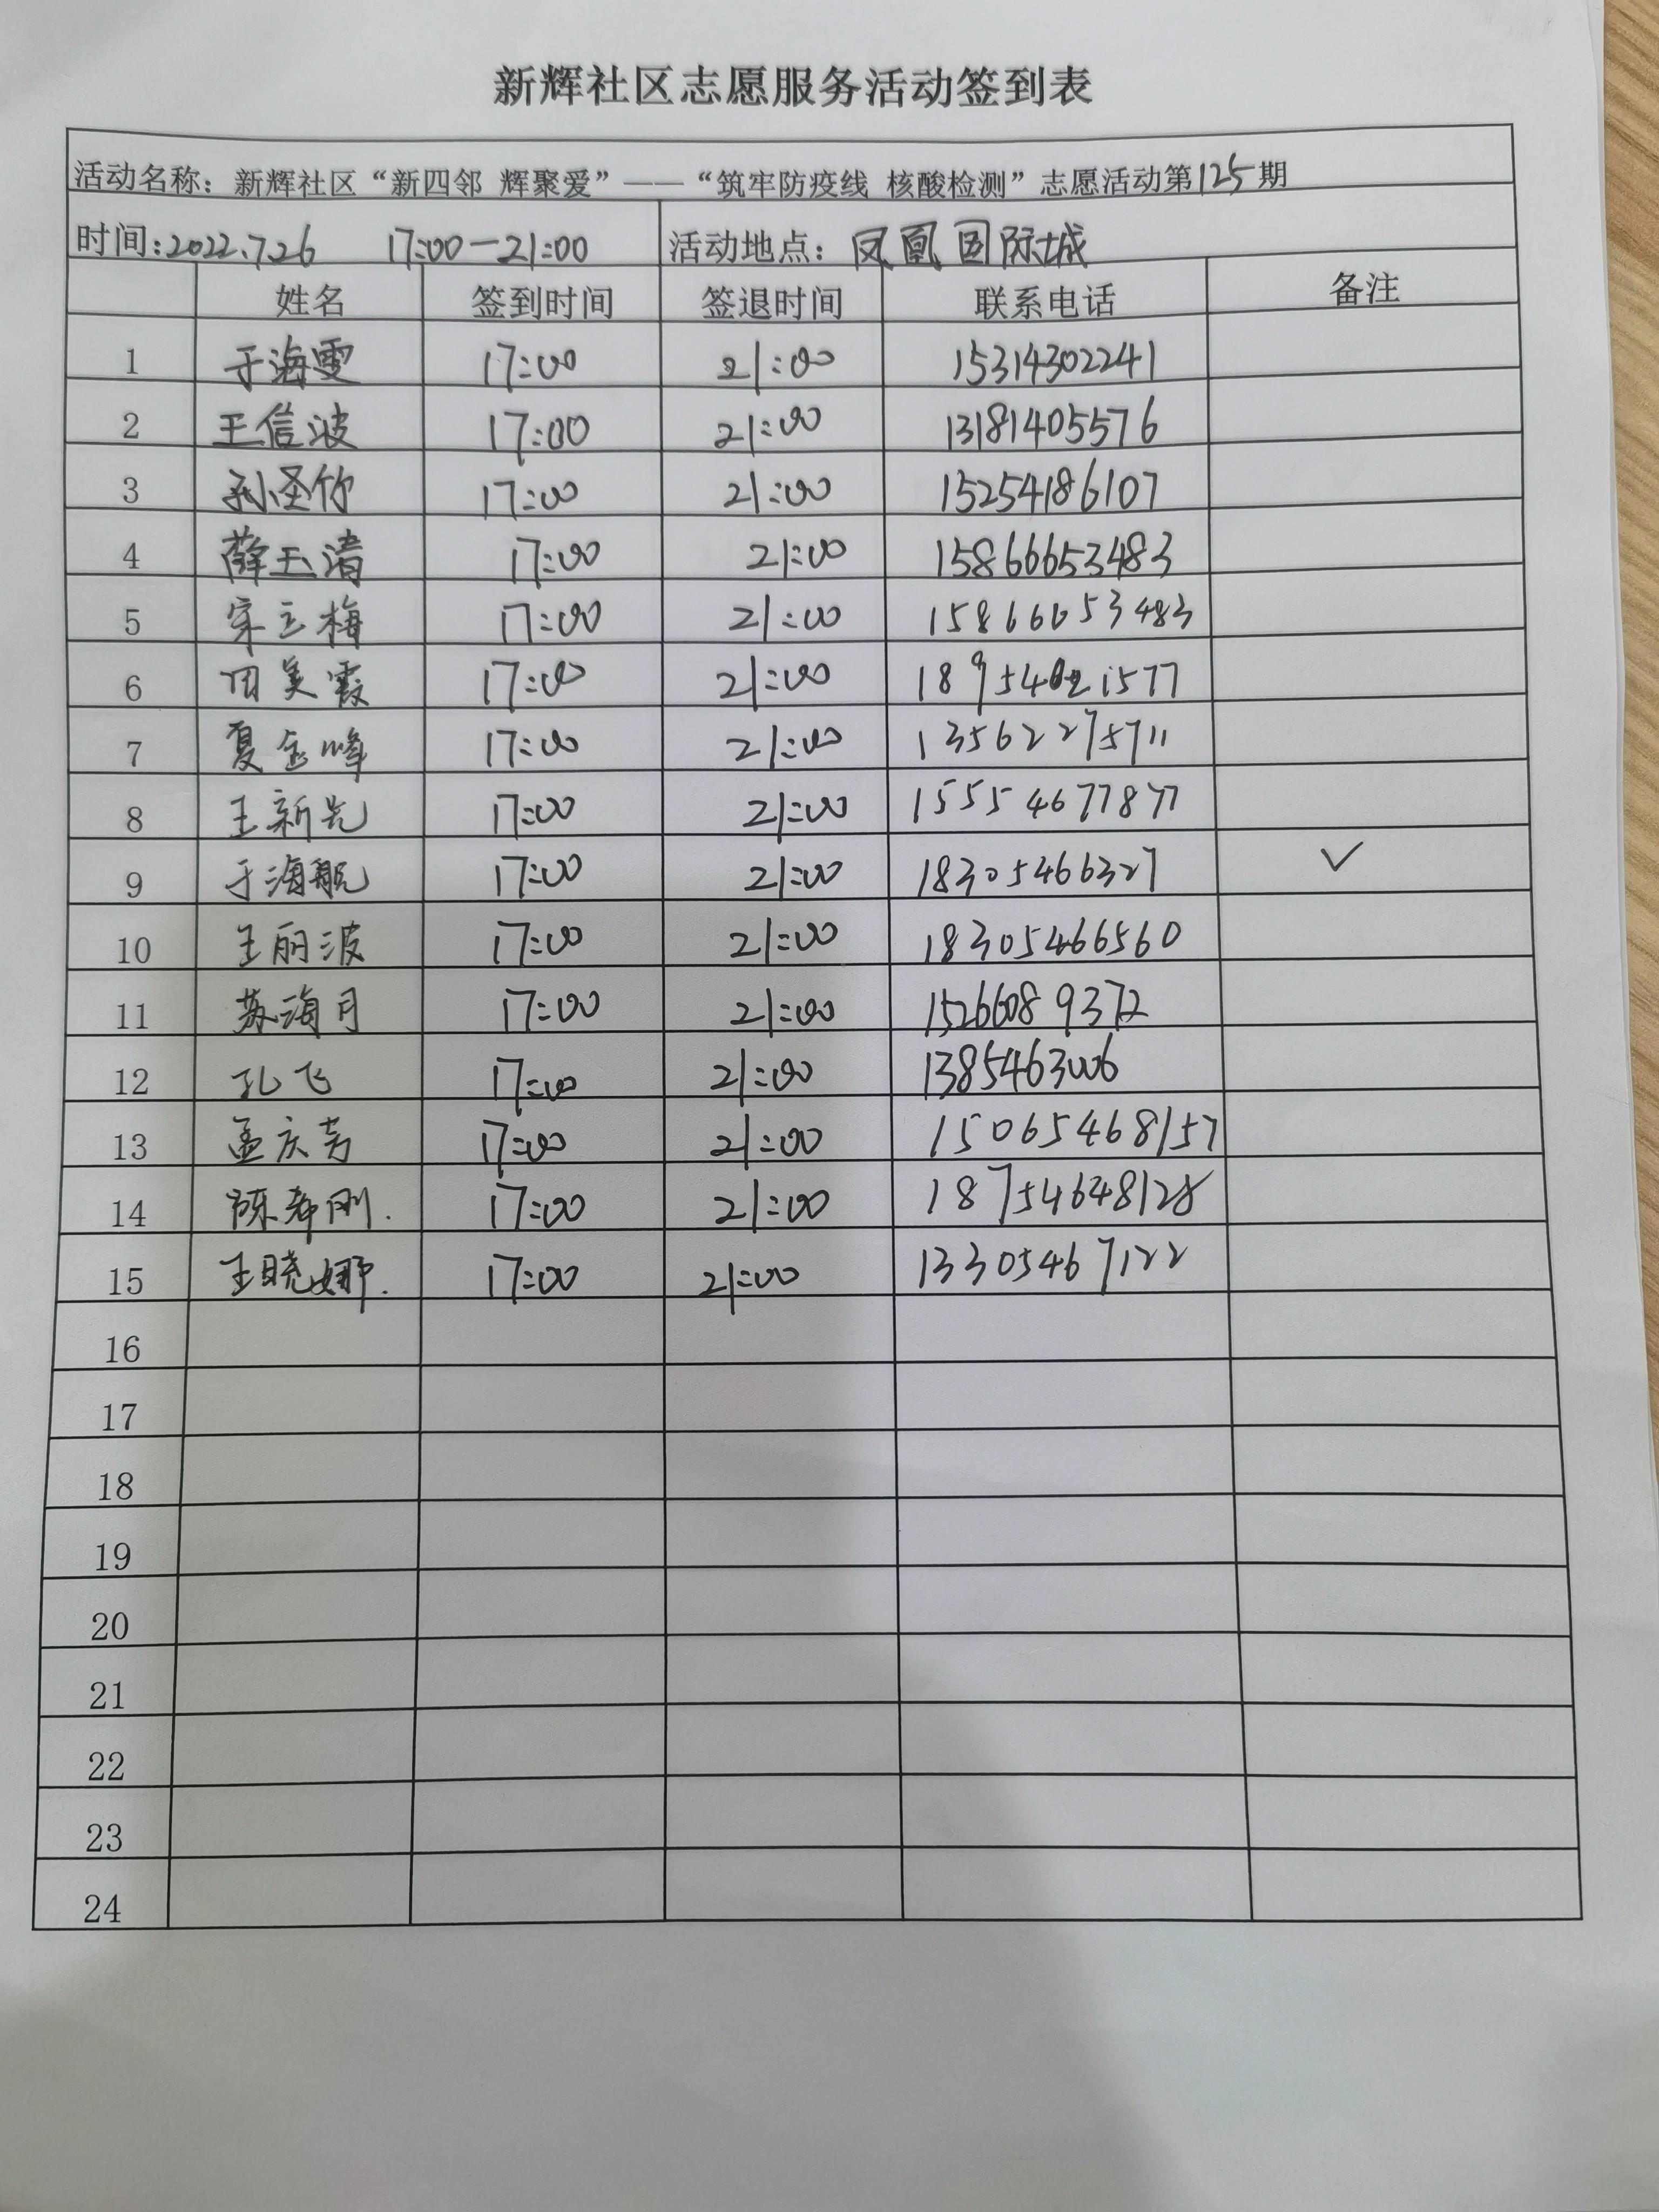 新辉社区志愿服务活动签到表
活动名称：新辉社区“新四邻 辉聚爱”——“筑牢防疫线 核酸检测”志愿活动第125期
时间：2022.7.26 17:00—21:00 活动地点：凤凰国际城
姓名 签到时间 签退时间 联系电话 备注
1 于海雯 17:00 21:00 15314302241
2 王信波 17:00 21:00 13181405576
3 孙圣竹 17:00 21:00 15254186107
4 薛玉清 17:00 21:00 15866653483
5 宋立梅 17:00 21:00 15866653483
6 田美霞 17:00 21:00
7 夏金峰 17:00 21:00 13562275711
8 王新先 17:00 21:00 15554677877
9 于海舰 17:00 21:00 18305466327 ✓
10 王丽波 17:00 21:00 18305466560
11 苏海月 17:00 21:00 15266089372
12 孔飞 17:00 21:00 1385463006
13 孟庆芳 17:00 21:00 15065468157
14 陈希刚. 17:00 21:00 18754648128
15 王晓娜. 17:00 21:00 13305467122
16
17
18
19
20
21
22
23
24